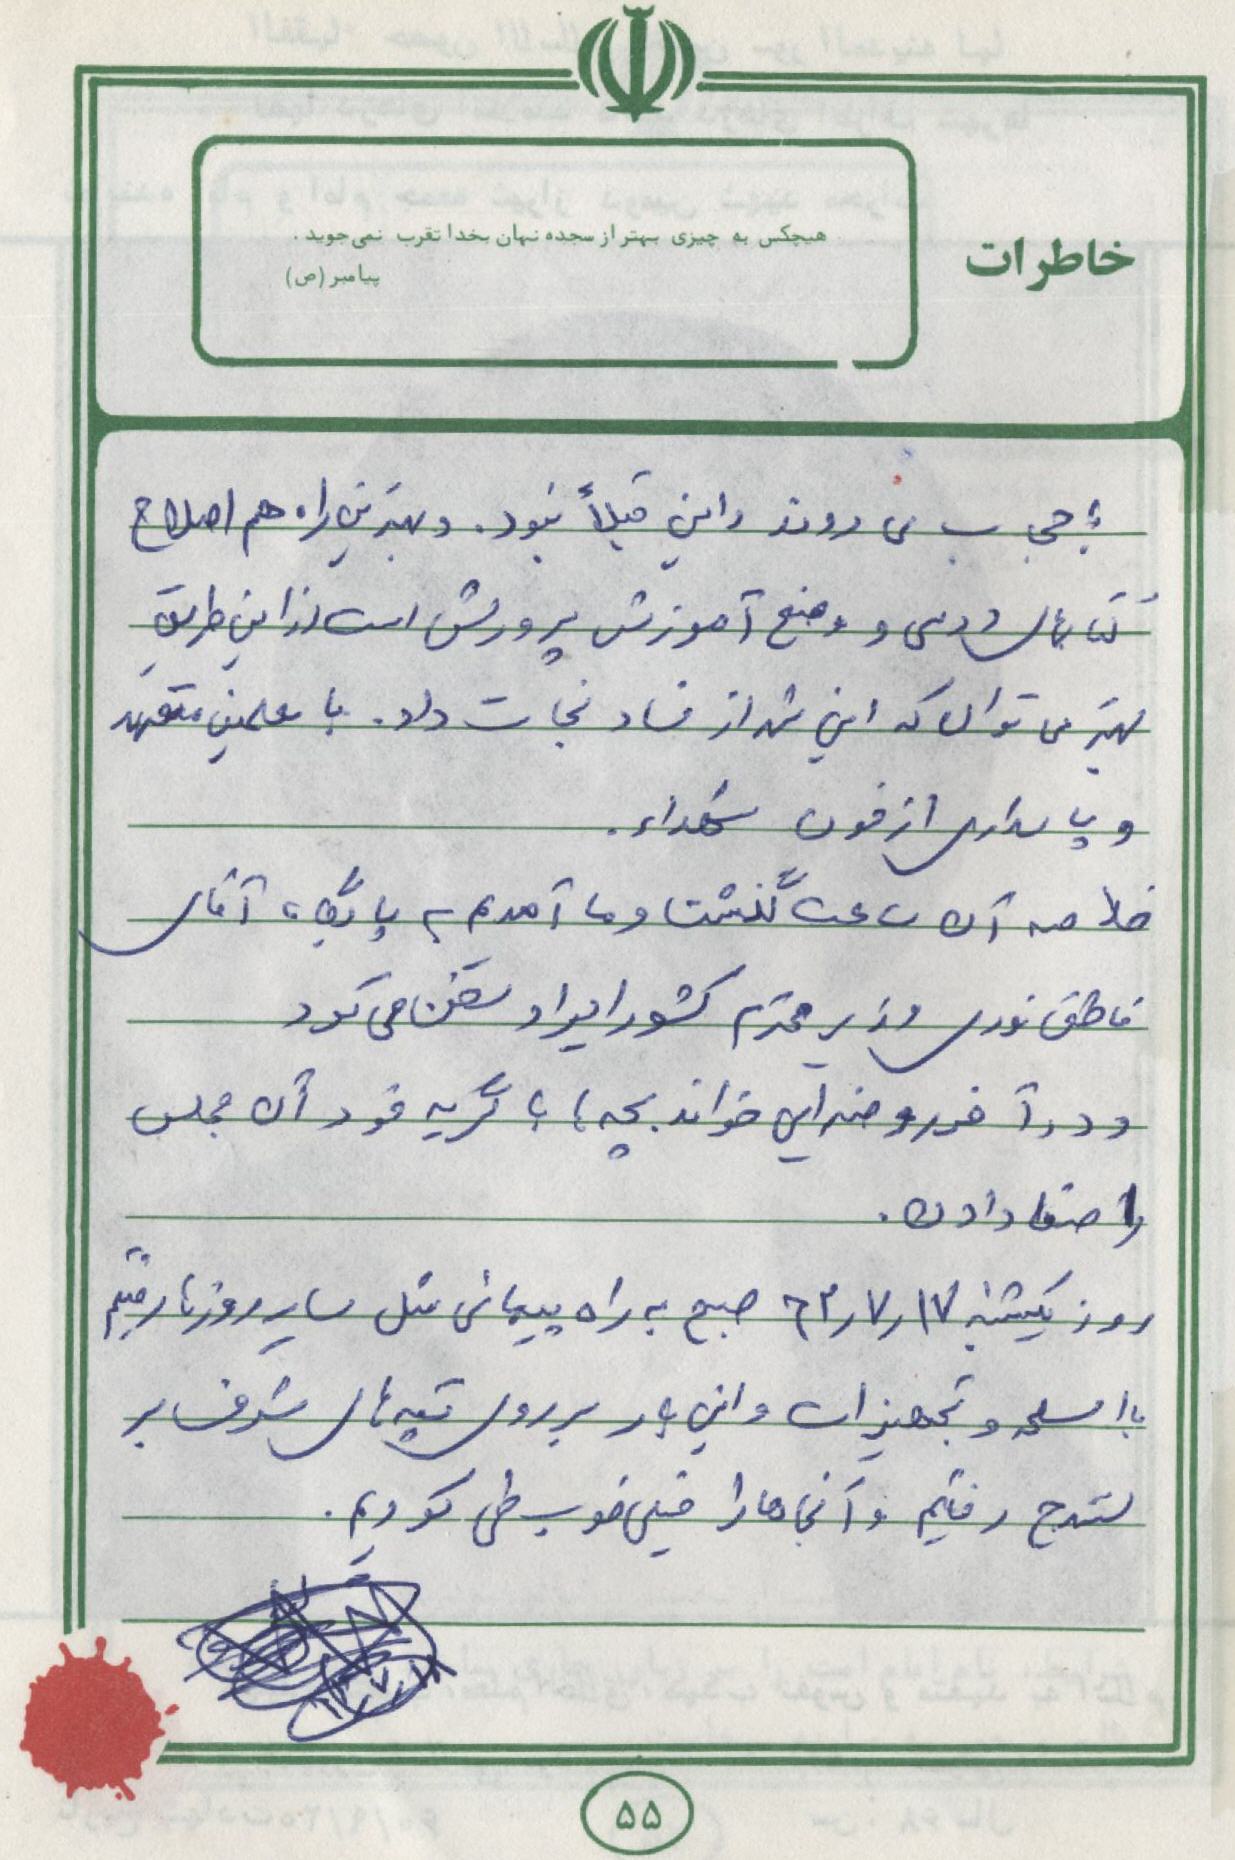 خاطرات
هیچکس به چیزی بهتر از سجده نهان بخدا تقرب نمی‌جوید .
پیامبر (ص)
می روند و این قبلاً نبود . و بهترین راه هم اصلاح
کتابهای درسی و وضع آموزش پرورش است از این طریق
بهتر می توان که این شهر از فساد نجات داد . با معلمین متعهد
و پاسداری از خون شهداء .
خلاصه آن ساعت گذشت و ما آمدیم به پایگاه آقای
ناطق نوری وزیر محترم کشور ایراد سخن می کرد
و در آخر روضه ایی خواند بچه ها با گریه خود آن مجلس
را صفا دادن .
روز یکشنبه ۶۳/۷/۱۷ صبح به راه پیمائی مثل سایر روزها رفتیم
با اسلحه و تجهیزات و این بار بر روی تپه های مشرف بر
سنندج رفتیم و آنجاها را خیلی خوب طی کردیم .
۵۵